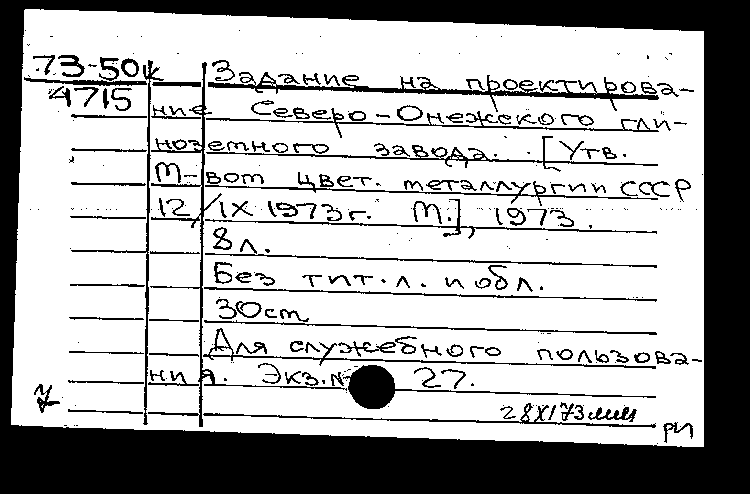 73-50к
4715
Задание на проектирова-
ние Северо-Онежского гли-
ноземного завода. [Утв.
М-вом цвет. металлургии СССР
12/IX 1973г. М.], 1973.
8л.
Без тит.л. и обл.
30см
Для служебного пользова-
ния. Экз.№ 27.
28XI73